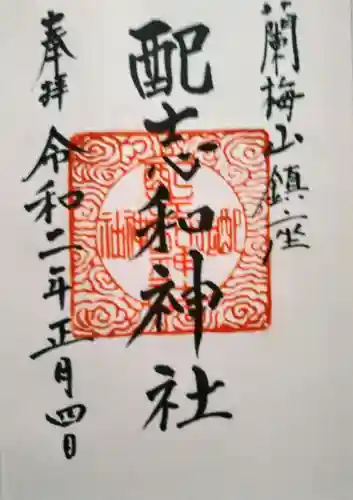 蘭梅山鎮座
配志和神社
奉拝
令和二年正月四日